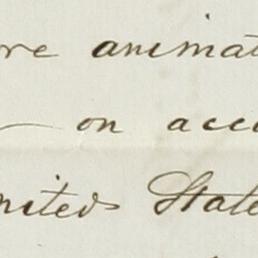 re animat
on accou
nited State